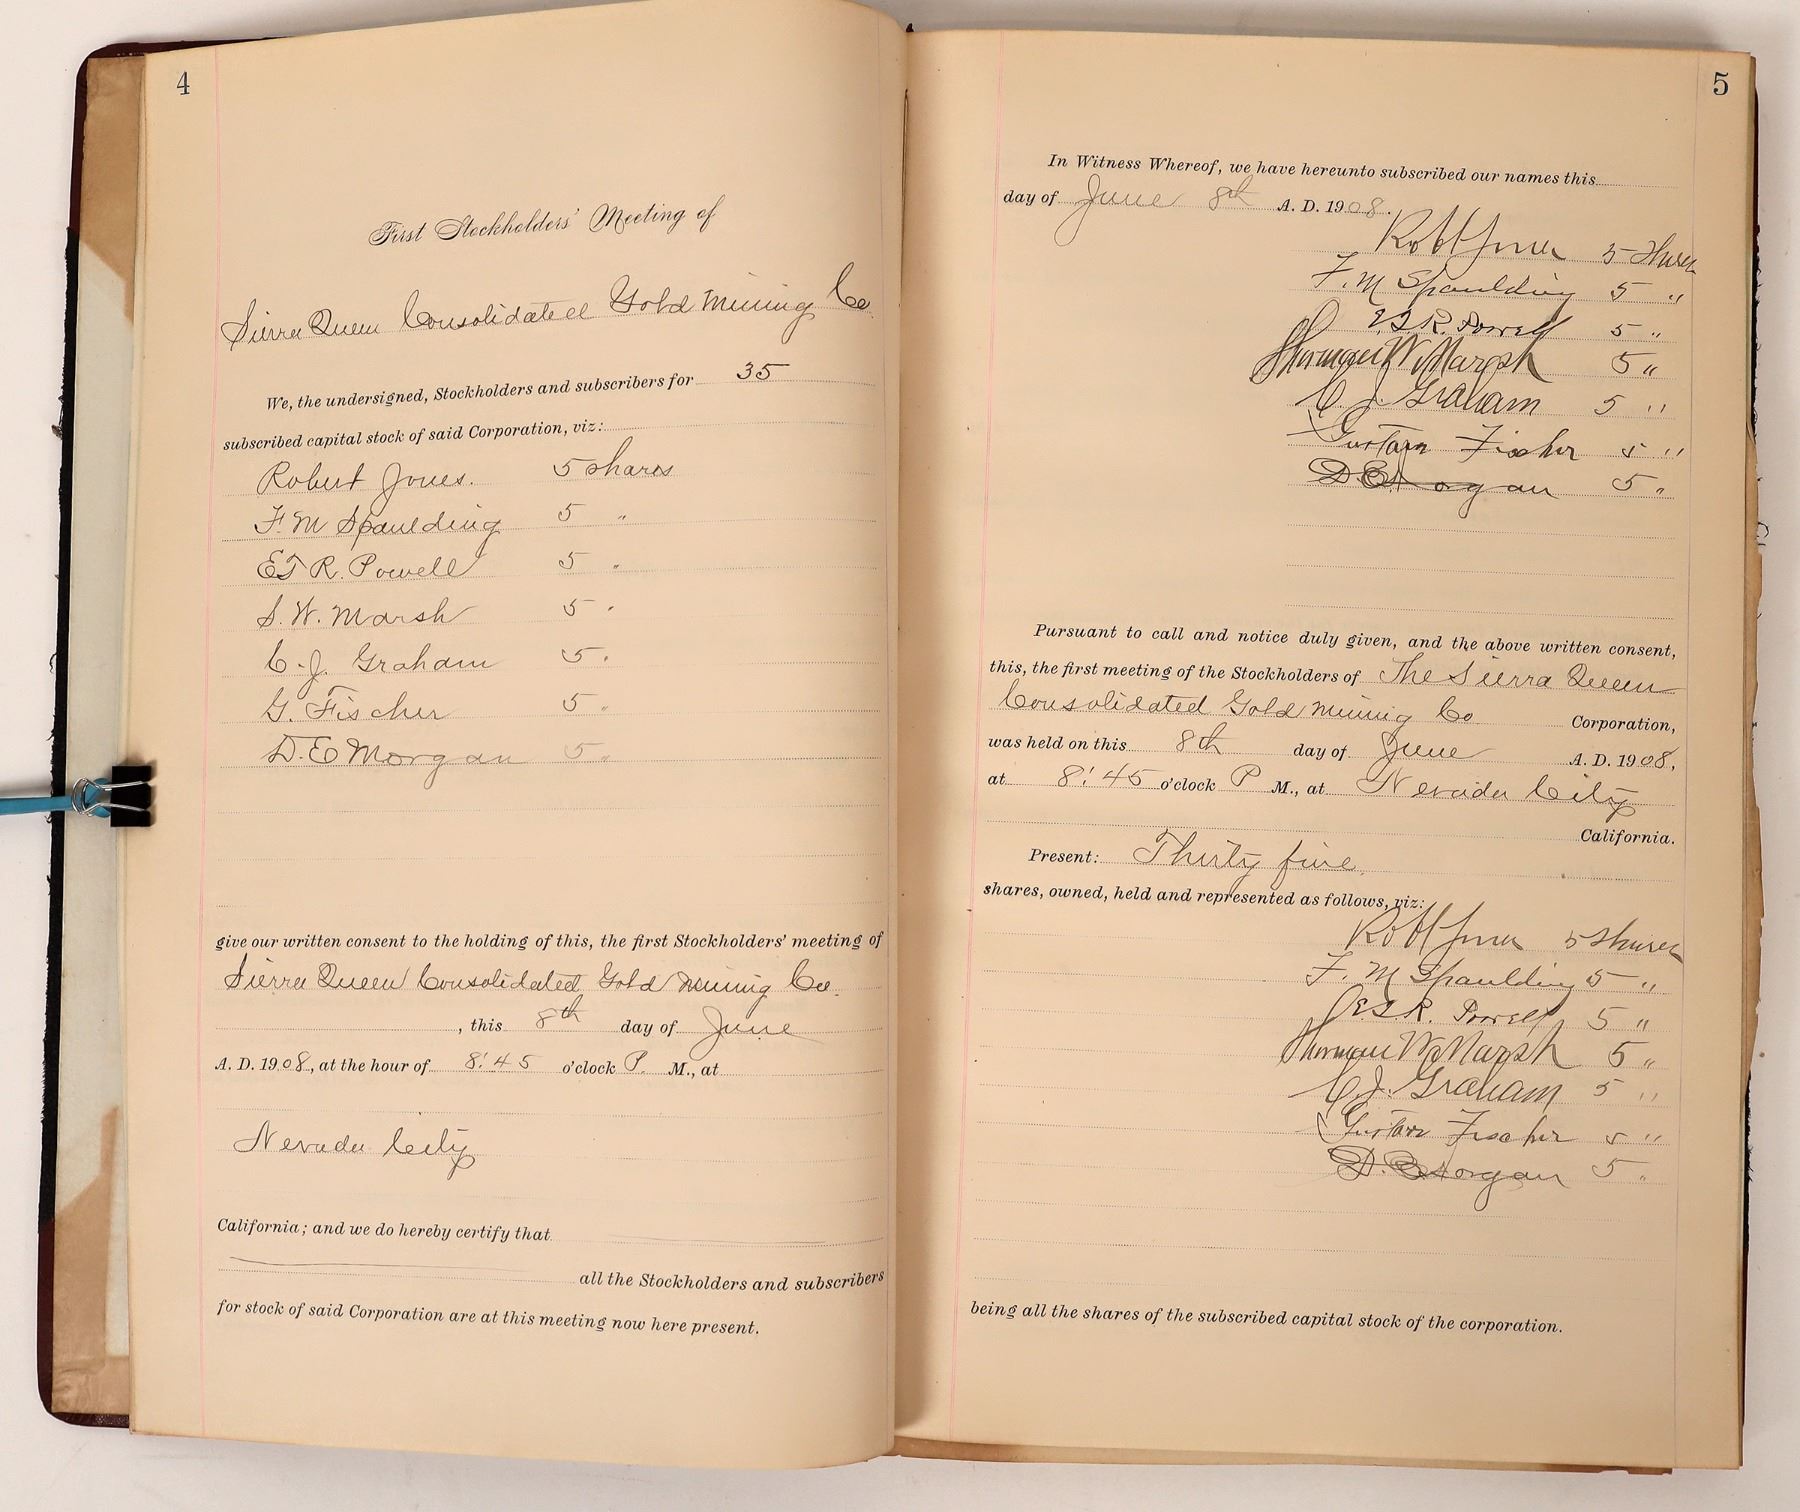 4
First Stockholders' Meeting of
Sierra Queen Consolidated Gold Mining Co.
We, the undersigned, Stockholders and subscribers for 35
subscribed capital stock of said Corporation, viz:
Robert Jones. 5 shares
F. M Spaulding 5 "
E T R. Powell 5 "
S. W. Marsh 5 "
C. J. Graham 5 "
G. Fischer 5 "
D. E Morgan 5 "
give our written consent to the holding of this, the first Stockholders' meeting of
Sierra Queen Consolidated Gold Mining Co.
, this 8th day of June
A. D. 1908, at the hour of 8:45 o'clock P. M., at
Nevada City
California; and we do hereby certify that
all the Stockholders and subscribers
for stock of said Corporation are at this meeting now here present.
5
In Witness Whereof, we have hereunto subscribed our names this
day of June 8th A. D. 1908.
Robt Jones 5 Shares
F. M Spaulding 5 "
E. T. R. Powell 5 "
Sherman W. Marsh 5 "
C. J. Graham 5 "
Gustave Fischer 5 "
D. E. Morgan 5 "
Pursuant to call and notice duly given, and the above written consent,
this, the first meeting of the Stockholders of The Sierra Queen
Consolidated Gold Mining Co Corporation,
was held on this 8th day of June A. D. 1908,
at 8:45 o'clock P M., at Nevada City
California.
Present: Thirty five
shares, owned, held and represented as follows, viz:
Robt Jones 5 Shares
F. M Spaulding 5 "
E. T. R. Powell 5 "
Sherman W. Marsh 5 "
C. J. Graham 5 "
Gustave Fischer 5 "
D. E. Morgan 5 "
being all the shares of the subscribed capital stock of the corporation.